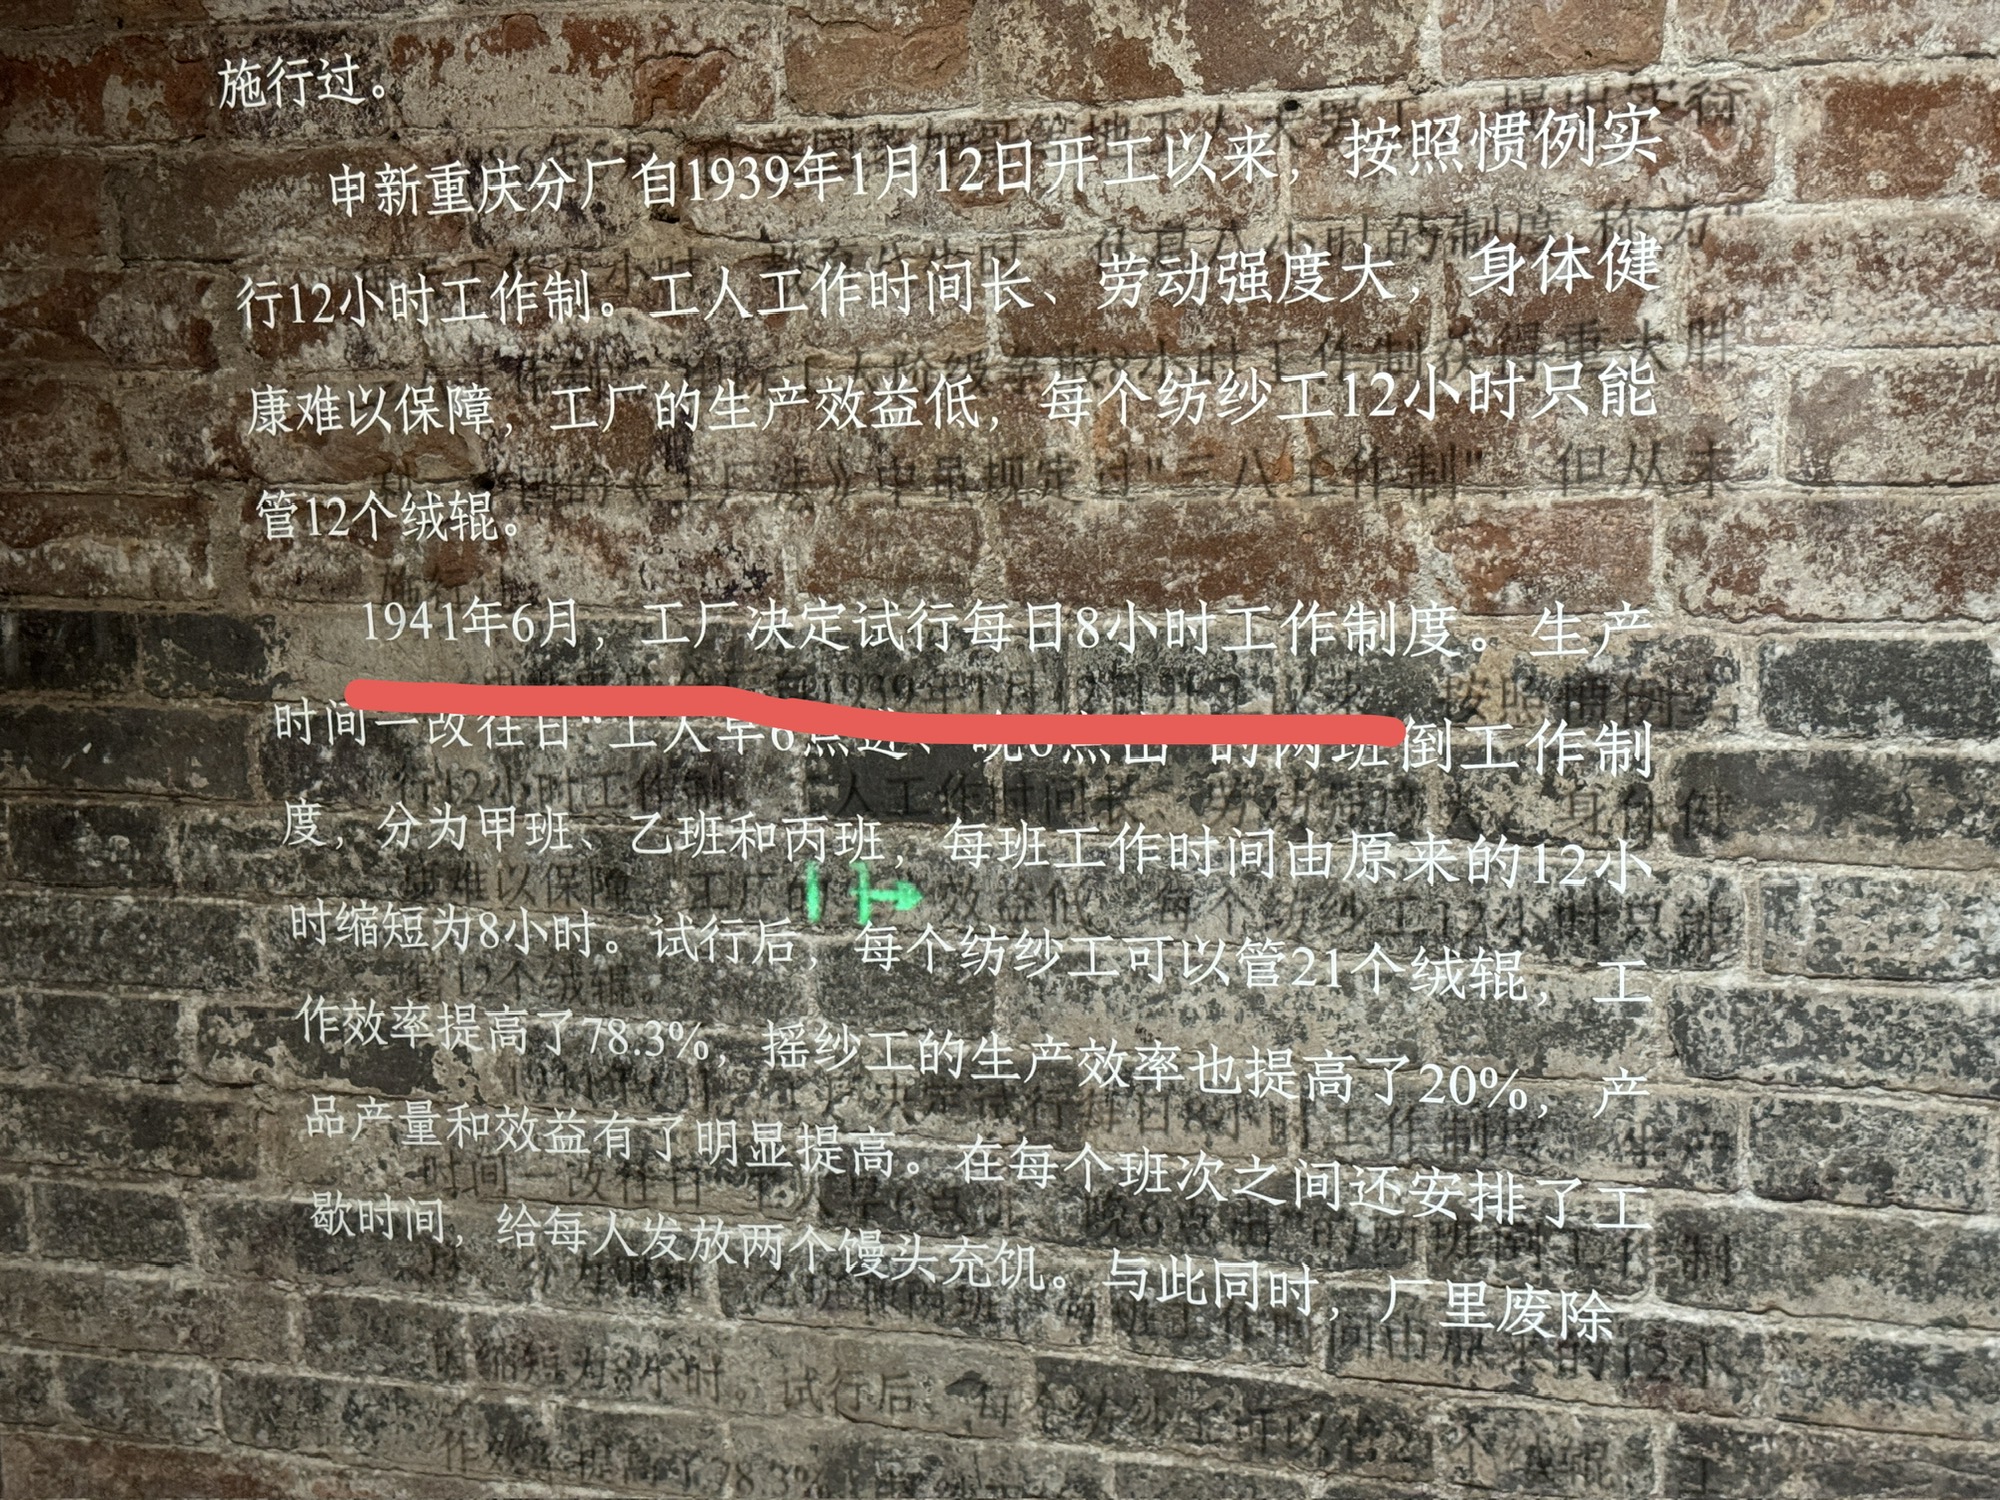 施行过。
申新重庆分厂自1939年1月12日开工以来，按照惯例实
行12小时工作制。工人工作时间长、劳动强度大，身体健
康难以保障，工厂的生产效益低，每个纺纱工12小时只能
管12个绒辊。
1941年6月，工厂决定试行每日8小时工作制度。生产
时间一改往日“工人早6点进、晚6点出”的两班倒工作制
度，分为甲班、乙班和丙班，每班工作时间由原来的12小
时缩短为8小时。试行后，每个纺纱工可以管21个绒辊，工
作效率提高了78.3%，摇纱工的生产效率也提高了20%，产
品产量和效益有了明显提高。在每个班次之间还安排了工
歇时间，给每人发放两个馒头充饥。与此同时，厂里废除